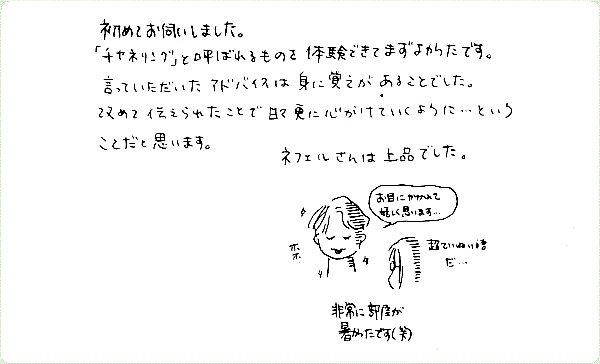 初めてお伺いしました。
「チャネリング」と呼ばれるものを体験できてまずよかったです。
言っていただいたアドバイスは身に覚えがあることでした。
改めて伝えられたことで日々更に心がけていくように…という
ことだと思います。
ネフェルさんは上品でした。
お目にかかれて
嬉しく思います…
ホホ
超ていねい語
だ…
非常に部屋が
暑かったです(笑)